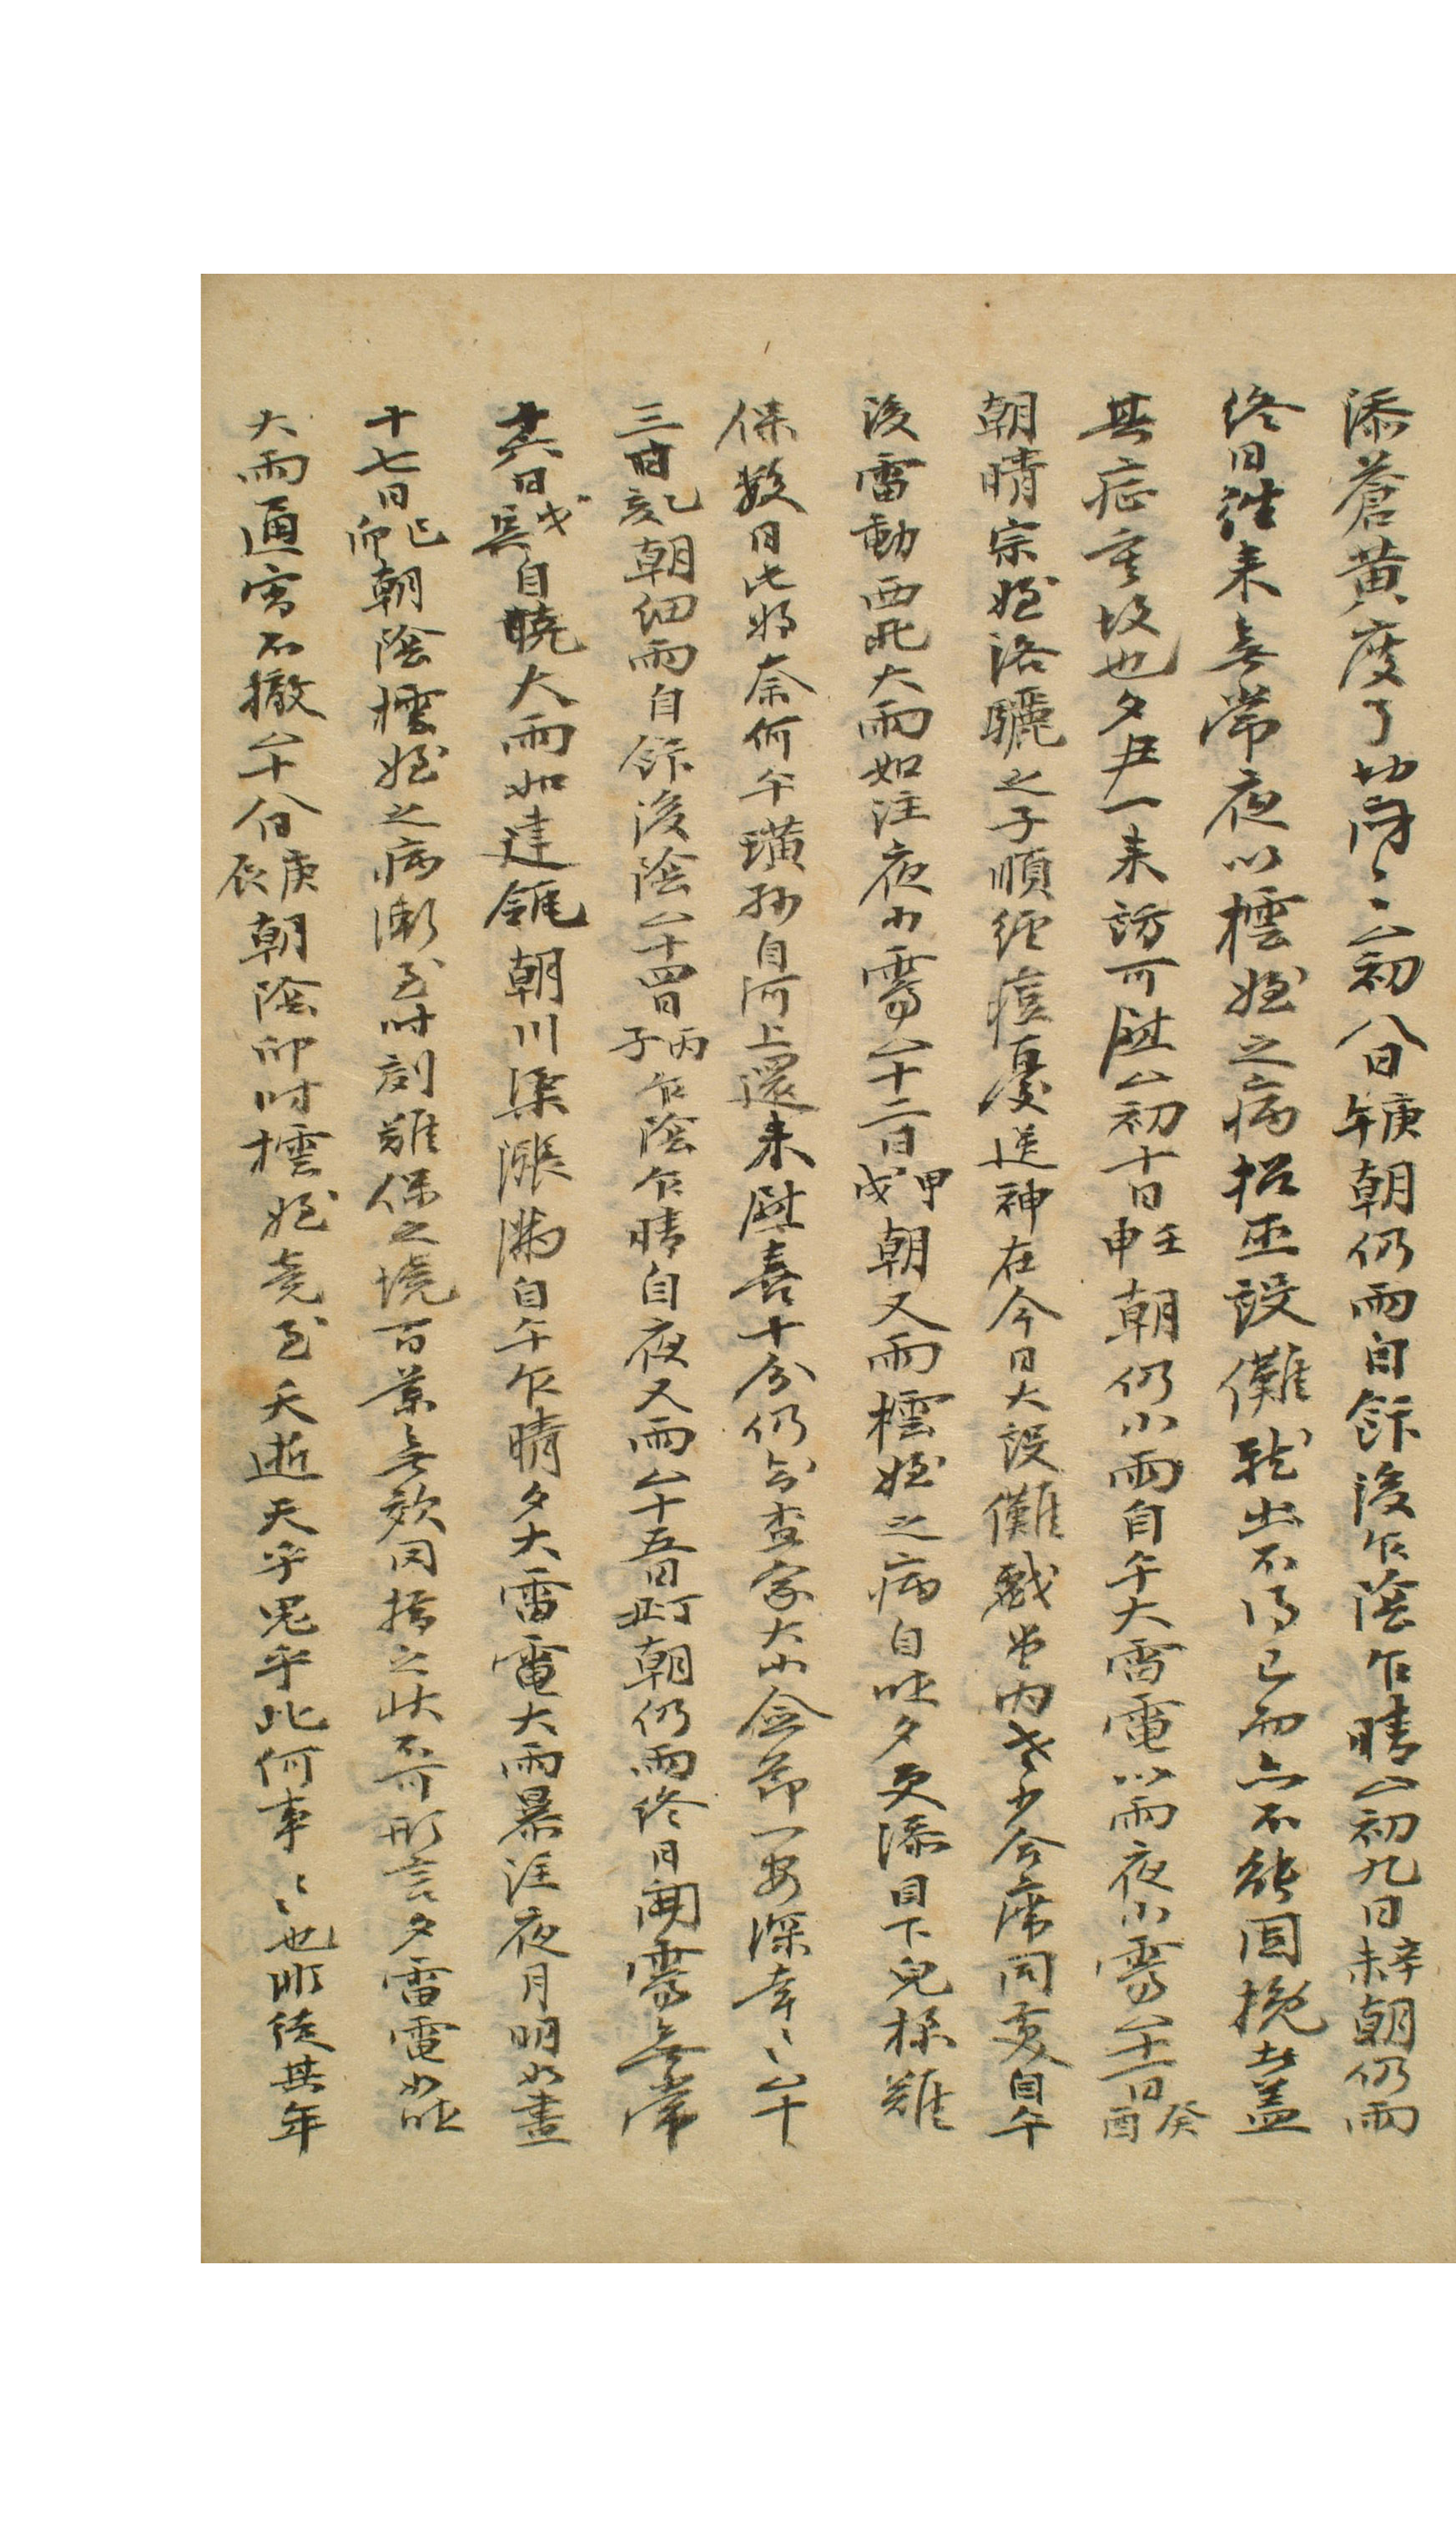 添蒼黃度了切悶〻△初八日庚午朝仍雨自飯後乍陰乍晴△初九日辛未朝仍雨
終日往來無常夜以橒姪之病招巫設儺戱出不得已而亦不能固挽盖
其症重故也夕尹一來訪可慰△初十日壬申朝仍小雨自午大雷電以雨夜小霽△十一日癸酉
朝晴宗姪洛驪之子順經痘憂送神在今日大設儺戱堂內老少合席同安自午
後雷動西北大雨如注夜小霽△十二日甲戌朝又雨橒姪之病自昨夕更添目下兒樣難
保數日此將奈何午璜孫自河上還來慰喜十分仍知查家大小僉節一安深幸〻△十
三日乙亥朝細雨自飯後陰△十四日丙子乍陰乍晴自夜又雨△十五日丁丑朝仍雨終日開霽無常
十六日戊寅自曉大雨如建瓴朝川渠漲滿自午乍晴夕大雷電大雨暴注夜月明如晝
十七日己卯朝陰橒姪之病漸至時刻難保之境百藥無效罔措之狀不可形言夕雷電如昨
大雨通宵不撤△十八日庚辰朝陰卯時橒姪竟至夭逝天乎鬼乎此何事〻也非徒其年